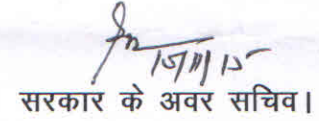 15/11/15
सरकार के अवर सचिव।